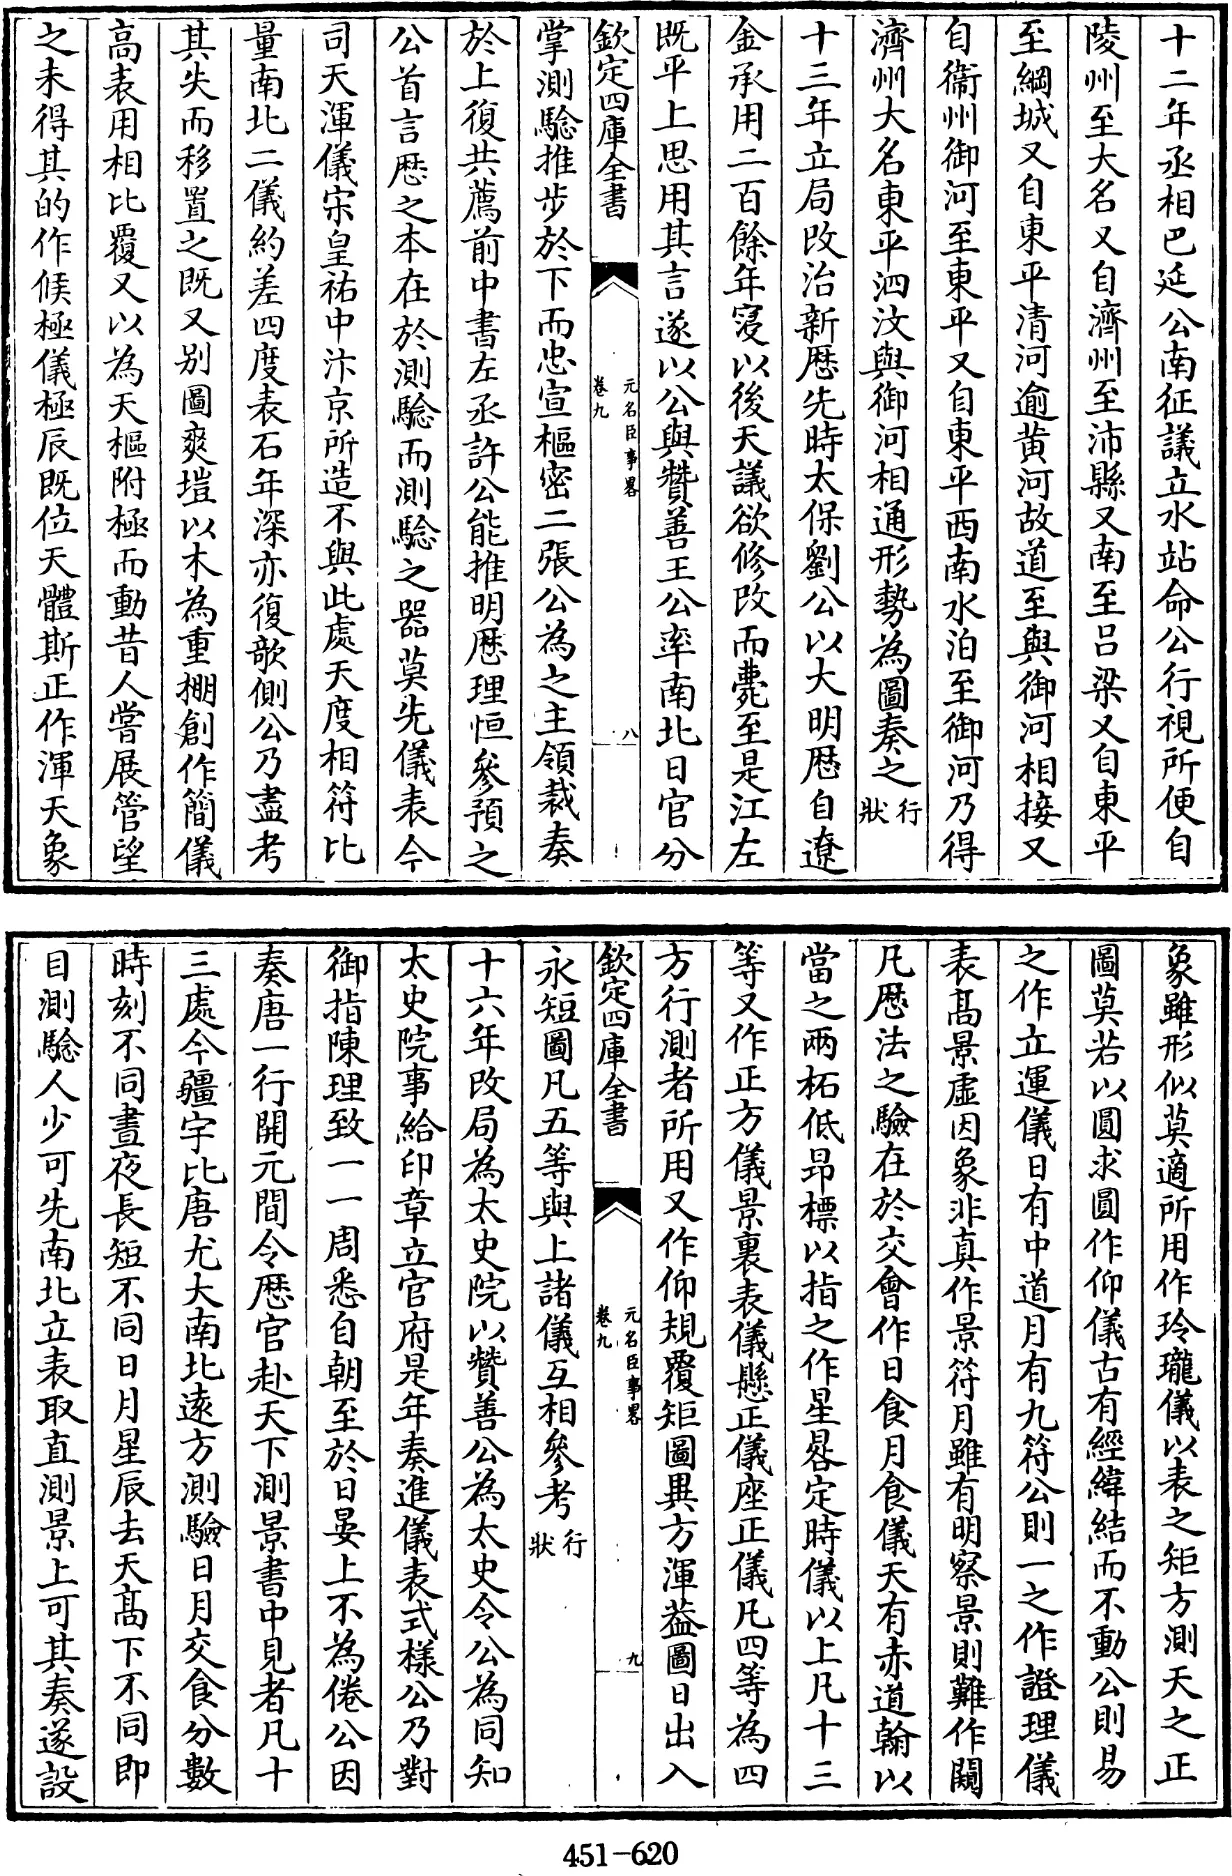 十二年丞相巴延公南征議立水站命公行視所便自
陵州至大名又自濟州至沛縣又南至吕梁又自東平
至綱城又自東平清河逾黄河故道至與御河相接又
自衞州御河至東平又自東平西南水泊至御河乃得
濟州大名東平泗汶與御河相通形勢為圖奏之行狀
十三年立局改治新厯先時太保劉公以大明厯自遼
金承用二百餘年寖以後天議欲修改而薨至是江左
既平上思用其言遂以公與贊善王公率南北日官分
欽定四庫全書
元名臣事畧
卷九
八
掌測驗推步於下而忠宣樞密二張公為之主領裁奏
於上復共薦前中書左丞許公能推明厯理恒參預之
公首言厯之本在於測驗而測驗之器莫先儀表今
司天渾儀宋皇祐中汴京所造不與此處天度相符比
量南北二儀約差四度表石年深亦復欹側公乃盡考
其失而移置之既又別圖爽塏以木為重棚創作簡儀
高表用相比覆又以為天樞附極而動昔人嘗展管望
之未得其的作候極儀極辰既位天體斯正作渾天象
象雖形似莫適所用作玲瓏儀以表之矩方測天之正
圖莫若以圓求圓作仰儀古有經緯結而不動公則易
之作立運儀日有中道月有九符公則一之作證理儀
表高景虚因象非真作景符月雖有明察景則難作闚
凡厯法之驗在於交會作日食月食儀天有赤道輪以
當之兩柘低昂標以指之作星晷定時儀以上凡十三
等又作正方儀景裏表儀懸正儀座正儀凡四等為四
方行測者所用又作仰規覆矩圖異方渾葢圖日出入
欽定四庫全書
元名臣事畧
卷九
九
永短圖凡五等與上諸儀互相參考行狀
十六年改局為太史院以贊善公為太史令公為同知
太史院事給印章立官府是年奏進儀表式樣公乃對
御指陳理致一一周悉自朝至於日晏上不為倦公因
奏唐一行開元間令厯官赴天下測景書中見者凡十
三處今疆宇比唐尤大南北遠方測驗日月交食分數
時刻不同晝夜長短不同日月星辰去天高下不同即
目測驗人少可先南北立表取直測景上可其奏遂設
451-620